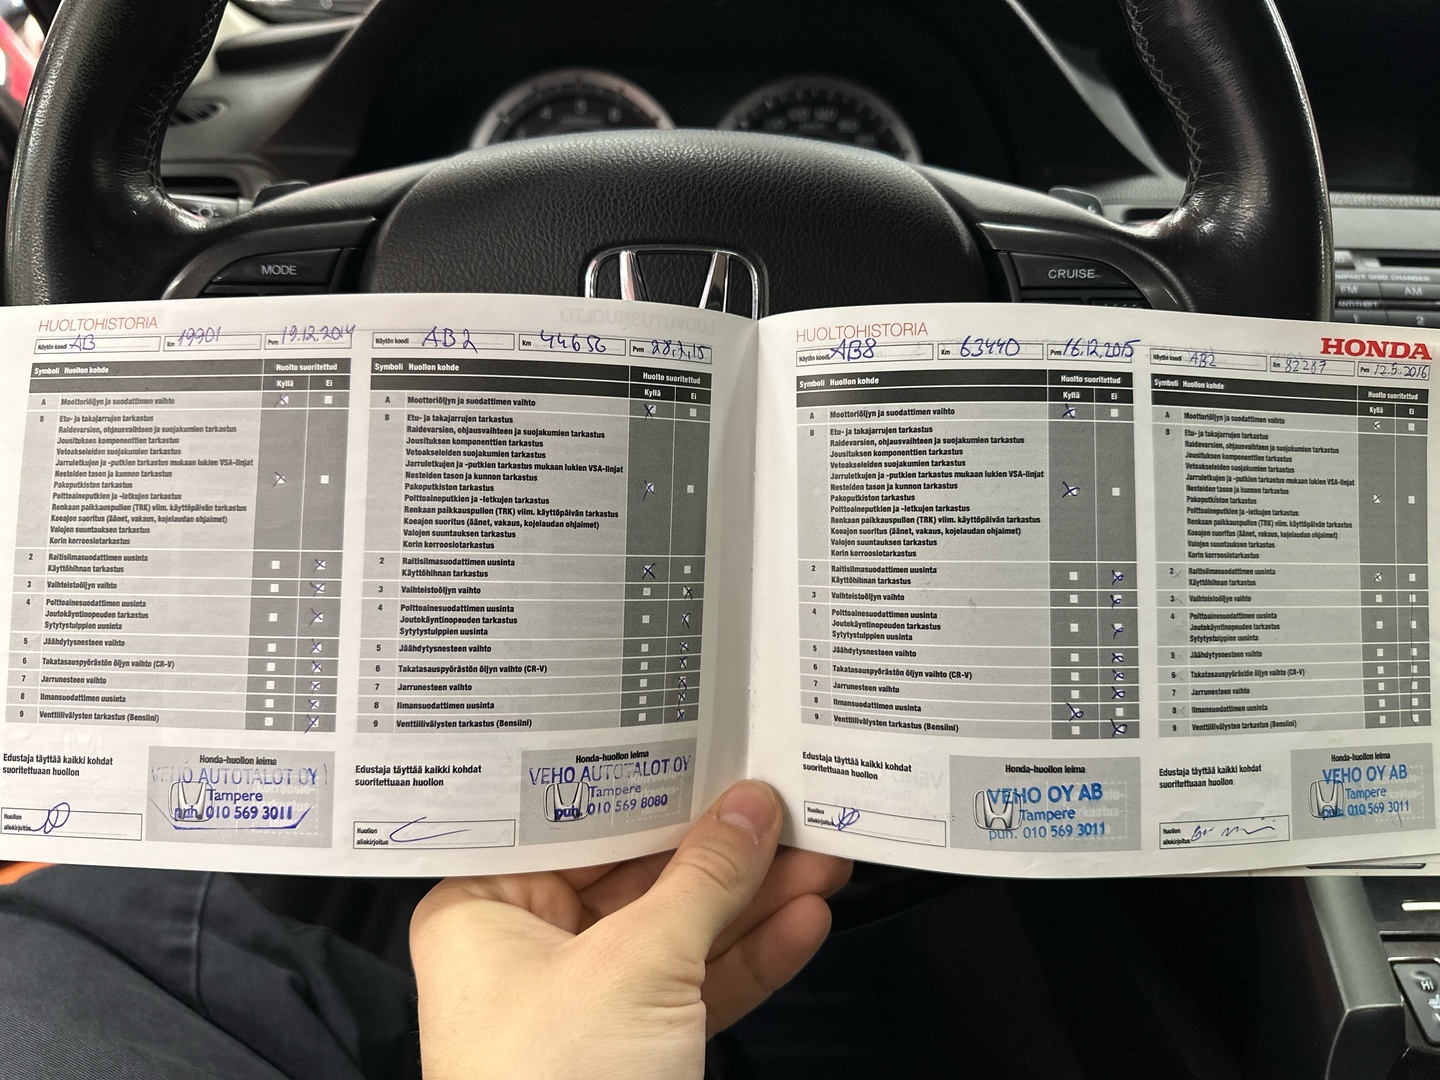 MODE
CRUISE
COMPACT DISC CHANGER
FM
AM
ANTITHEFT
HUOLTOHISTORIA
Näytön koodi AB
Km 19901
Pvm 19.12.2014
Symboli Huollon kohde Huolto suoritettud
Kyllä Ei
A Moottoriöljyn ja suodattimen vaihto
B Etu- ja takajarrujen tarkastus
Raidevarsien, ohjausvaihteen ja suojakumien tarkastus
Jousituksen komponenttien tarkastus
Vetoakseleiden suojakumien tarkastus
Jarruletkujen ja -putkien tarkastus mukaan lukien VSA-linjat
Nesteiden tason ja kunnon tarkastus
Pakoputkiston tarkastus
Polttoaineputkien ja -letkujen tarkastus
Renkaan paikkauspullon (TRK) viim. käyttöpäivän tarkastus
Koeajon suoritus (äänet, vakaus, kojelaudan ohjaimet)
Valojen suuntauksen tarkastus
Korin korroosiotarkastus
2 Raitisilmasuodattimen uusinta
Käyttöhihnan tarkastus
3 Vaihteistoöljyn vaihto
4 Polttoainesuodattimen uusinta
Joutokäyntinopeuden tarkastus
Sytytystulppien uusinta
5 Jäähdytysnesteen vaihto
6 Takatasauspyörästön öljyn vaihto (CR-V)
7 Jarrunesteen vaihto
8 Ilmansuodattimen uusinta
9 Venttiilivälysten tarkastus (Bensiini)
Edustaja täyttää kaikki kohdat
suoritettuaan huollon
Honda-huollon leima
VEHO AUTOTALOT OY
Tampere
puh. 010 569 3011
Huollon
allekirjoitus
Näytön koodi AB2
Km 44656
Pvm 28.7.15
Symboli Huollon kohde Huolto suoritettud
Kyllä Ei
A Moottoriöljyn ja suodattimen vaihto
B Etu- ja takajarrujen tarkastus
Raidevarsien, ohjausvaihteen ja suojakumien tarkastus
Jousituksen komponenttien tarkastus
Vetoakseleiden suojakumien tarkastus
Jarruletkujen ja -putkien tarkastus mukaan lukien VSA-linjat
Nesteiden tason ja kunnon tarkastus
Pakoputkiston tarkastus
Polttoaineputkien ja -letkujen tarkastus
Renkaan paikkauspullon (TRK) viim. käyttöpäivän tarkastus
Koeajon suoritus (äänet, vakaus, kojelaudan ohjaimet)
Valojen suuntauksen tarkastus
Korin korroosiotarkastus
2 Raitisilmasuodattimen uusinta
Käyttöhihnan tarkastus
3 Vaihteistoöljyn vaihto
4 Polttoainesuodattimen uusinta
Joutokäyntinopeuden tarkastus
Sytytystulppien uusinta
5 Jäähdytysnesteen vaihto
6 Takatasauspyörästön öljyn vaihto (CR-V)
7 Jarrunesteen vaihto
8 Ilmansuodattimen uusinta
9 Venttiilivälysten tarkastus (Bensiini)
Edustaja täyttää kaikki kohdat
suoritettuaan huollon
Honda-huollon leima
VEHO AUTOTALOT OY
Tampere
puh. 010 569 8080
Huollon
allekirjoitus
HUOLTOHISTORIA
Näytön koodi AB8
Km 63440
Pvm 16.12.2015
Symboli Huollon kohde Huolto suoritettud
Kyllä Ei
A Moottoriöljyn ja suodattimen vaihto
B Etu- ja takajarrujen tarkastus
Raidevarsien, ohjausvaihteen ja suojakumien tarkastus
Jousituksen komponenttien tarkastus
Vetoakseleiden suojakumien tarkastus
Jarruletkujen ja -putkien tarkastus mukaan lukien VSA-linjat
Nesteiden tason ja kunnon tarkastus
Pakoputkiston tarkastus
Polttoaineputkien ja -letkujen tarkastus
Renkaan paikkauspullon (TRK) viim. käyttöpäivän tarkastus
Koeajon suoritus (äänet, vakaus, kojelaudan ohjaimet)
Valojen suuntauksen tarkastus
Korin korroosiotarkastus
2 Raitisilmasuodattimen uusinta
Käyttöhihnan tarkastus
3 Vaihteistoöljyn vaihto
4 Polttoainesuodattimen uusinta
Joutokäyntinopeuden tarkastus
Sytytystulppien uusinta
5 Jäähdytysnesteen vaihto
6 Takatasauspyörästön öljyn vaihto (CR-V)
7 Jarrunesteen vaihto
8 Ilmansuodattimen uusinta
9 Venttiilivälysten tarkastus (Bensiini)
Edustaja täyttää kaikki kohdat
suoritettuaan huollon
Honda-huollon leima
VEHO OY AB
Tampere
puh. 010 569 3011
Huollon
allekirjoitus
HONDA
Näytön koodi AB2
Km 82287
Pvm 12.5.2016
Symboli Huollon kohde Huolto suoritettud
Kyllä Ei
A Moottoriöljyn ja suodattimen vaihto
B Etu- ja takajarrujen tarkastus
Raidevarsien, ohjausvaihteen ja suojakumien tarkastus
Jousituksen komponenttien tarkastus
Vetoakseleiden suojakumien tarkastus
Jarruletkujen ja -putkien tarkastus mukaan lukien VSA-linjat
Nesteiden tason ja kunnon tarkastus
Pakoputkiston tarkastus
Polttoaineputkien ja -letkujen tarkastus
Renkaan paikkauspullon (TRK) viim. käyttöpäivän tarkastus
Koeajon suoritus (äänet, vakaus, kojelaudan ohjaimet)
Valojen suuntauksen tarkastus
Korin korroosiotarkastus
2 Raitisilmasuodattimen uusinta
Käyttöhihnan tarkastus
3 Vaihteistoöljyn vaihto
4 Polttoainesuodattimen uusinta
Joutokäyntinopeuden tarkastus
Sytytystulppien uusinta
5 Jäähdytysnesteen vaihto
6 Takatasauspyörästön öljyn vaihto (CR-V)
7 Jarrunesteen vaihto
8 Ilmansuodattimen uusinta
9 Venttiilivälysten tarkastus (Bensiini)
Edustaja täyttää kaikki kohdat
suoritettuaan huollon
Honda-huollon leima
VEHO OY AB
Tampere
puh. 010 569 3011
Huollon
allekirjoitus
HI